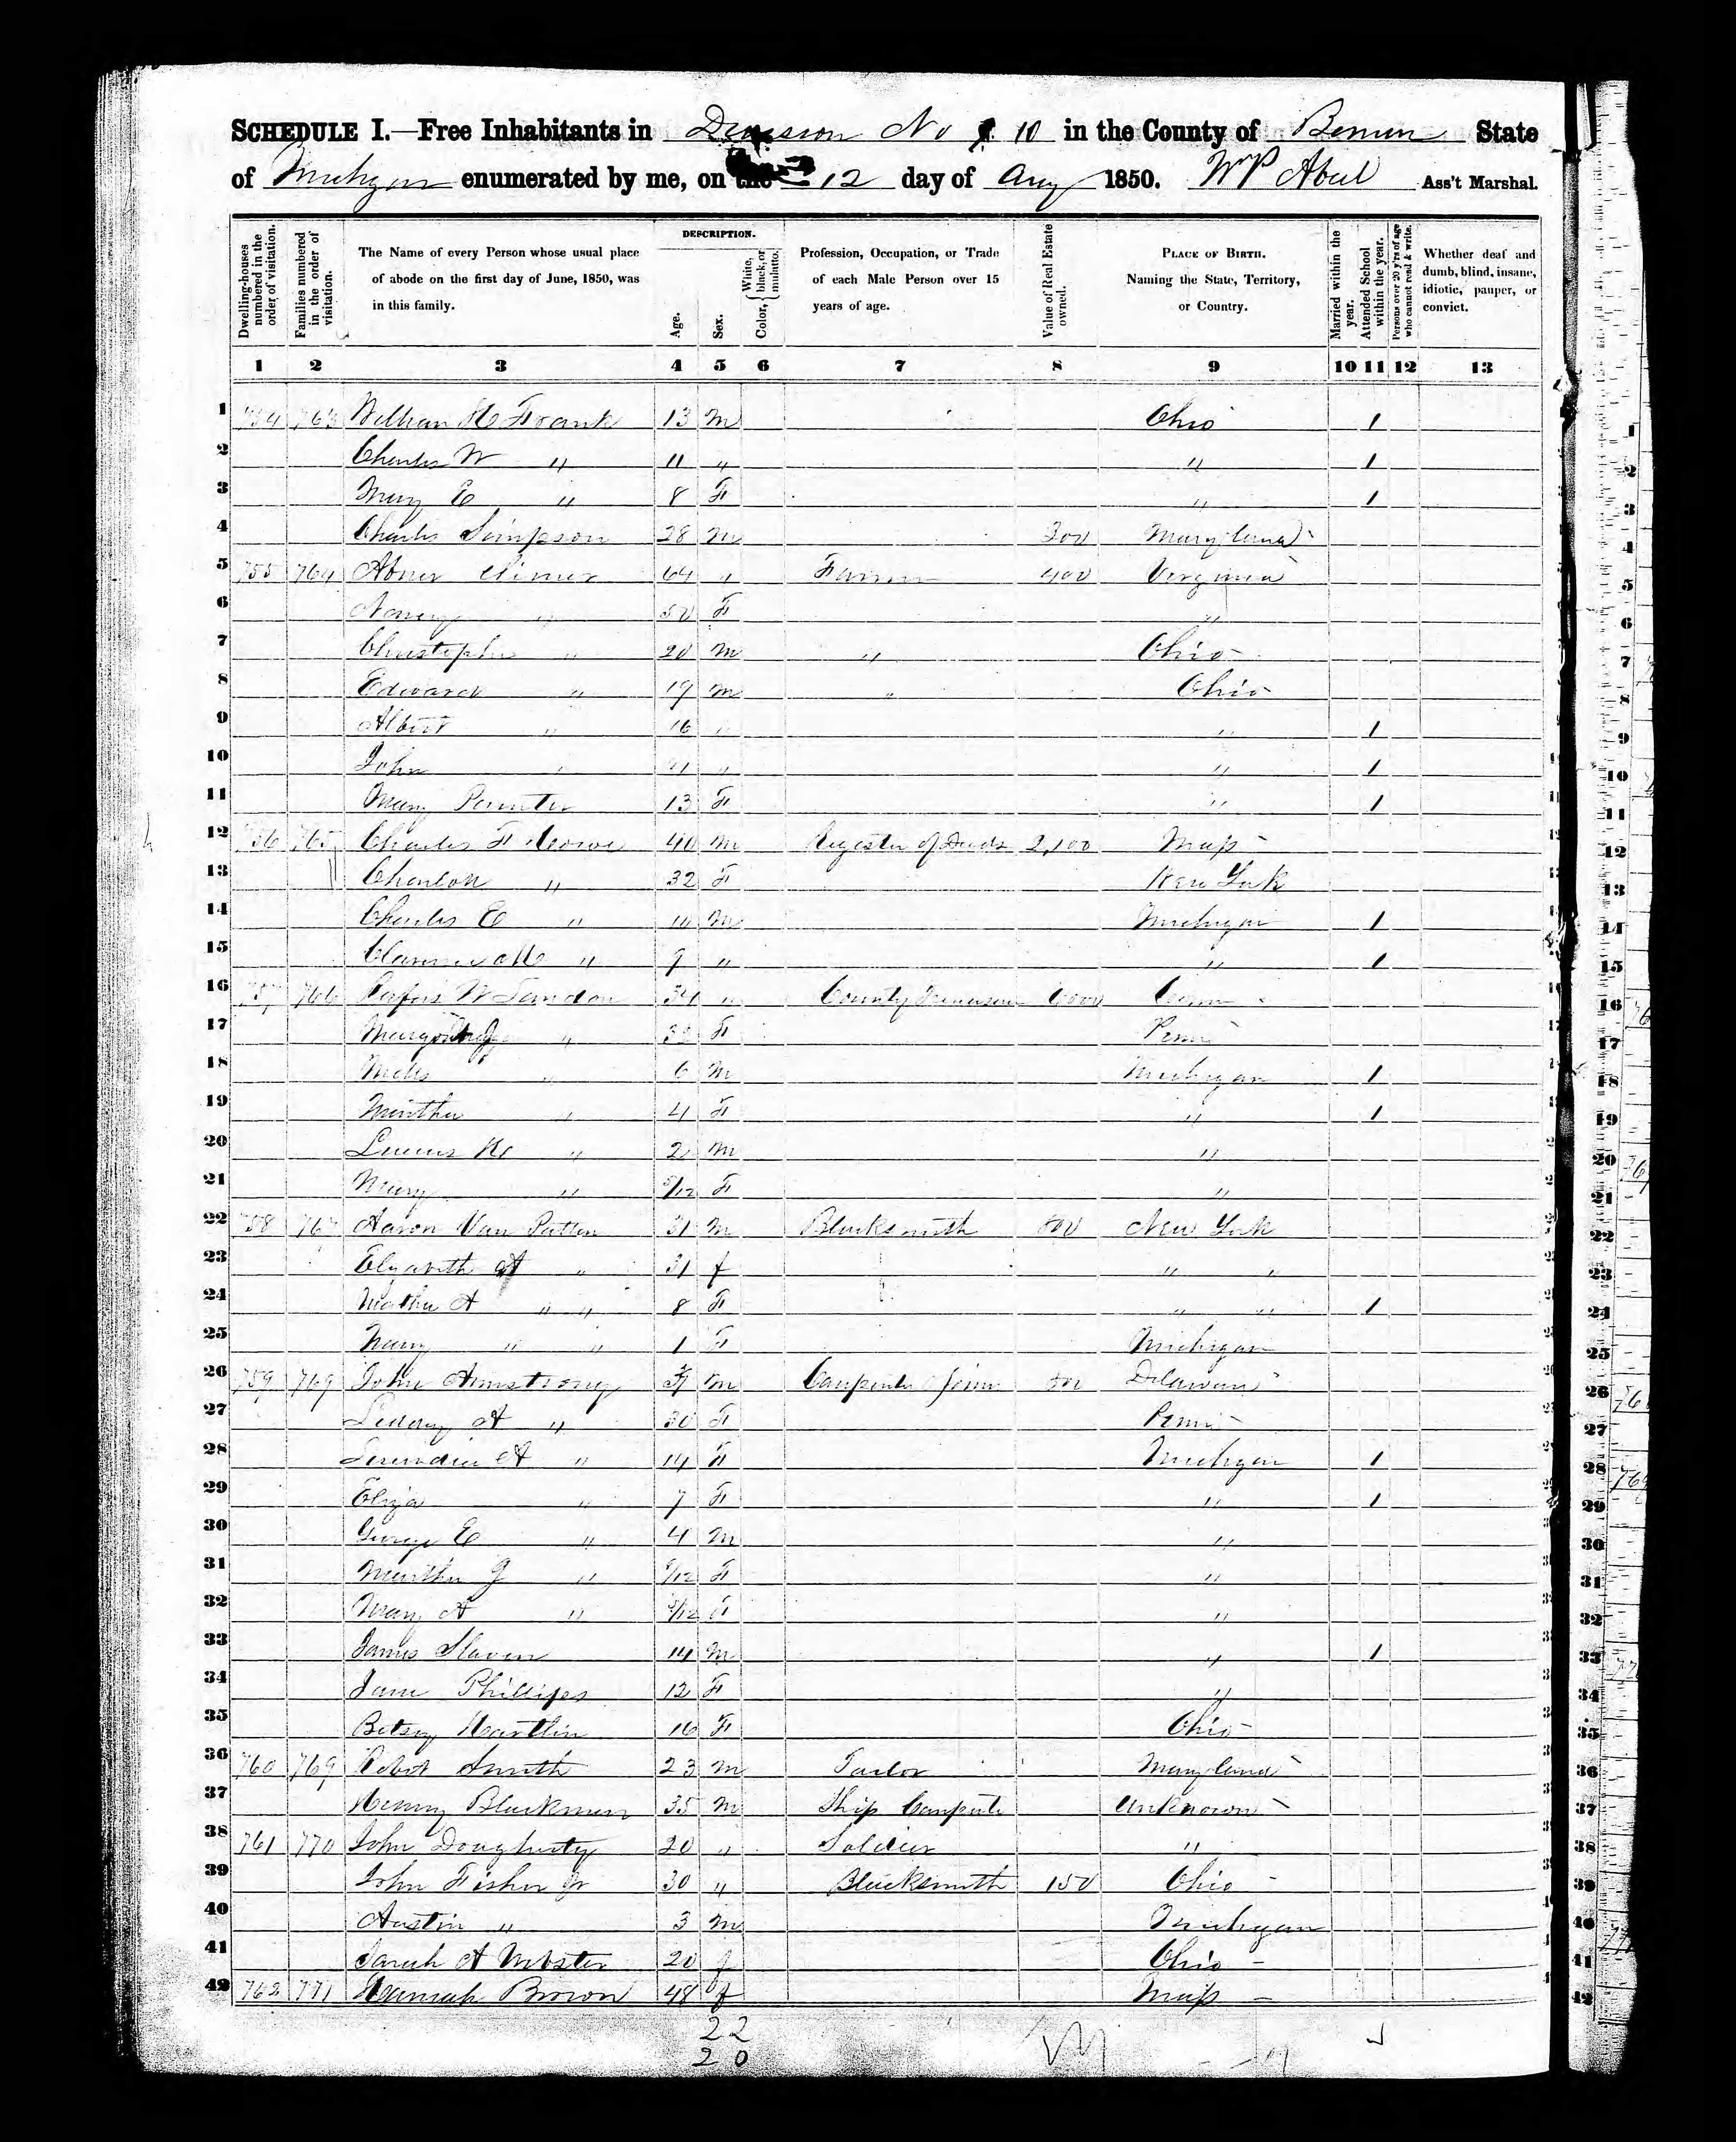 SCHEDULE I.—Free Inhabitants in Division No 10 in the County of Berrien State
of Michigan enumerated by me, on the 12 day of Aug 1850. Wm P Abeel Ass't Marshal.
Dwelling-houses numbered in the order of visitation.
Families numbered in the order of visitation.
The Name of every Person whose usual place of abode on the first day of June, 1850, was in this family.
DESCRIPTION.
Age.
Sex.
Color, { White, black, or mulatto.
Profession, Occupation, or Trade of each Male Person over 15 years of age.
Value of Real Estate owned.
PLACE OF BIRTH. Naming the State, Territory, or Country.
Married within the year.
Attended School within the year.
Persons over 20 y'rs of age who cannot read & write.
Whether deaf and dumb, blind, insane, idiotic, pauper, or convict.
1 2 3 4 5 6 7 8 9 10 11 12 13
1 754 763 William H Frank 13 M Ohio 1
2 Charles W " 11 " " 1
3 Mary E " 8 F " 1
4 Charles Simpson 28 M 300 Maryland
5 755 764 Abner 64 " Farmer 400 Virginia
6 Nancy " 50 F "
7 Christopher " 20 M " Ohio
8 Edward " 19 M " Ohio
9 Albert " 16 " " 1
10 John " " " 1
11 Mary Painter 13 F " 1
12 756 765 Charles F 40 M Register of Deeds 2,100 Mass
13 Charlott " 32 F New York
14 Charles E " 10 M Michigan 1
15 " 9 " " 1
16 757 766 Rufus W Landon 34 " County 6000 Conn
17 " F Penn
18 " 6 M Michigan 1
19 Martha " 4 F " 1
20 " 2 M "
21 Mary " 5/12 F "
22 758 767 Aaron Van Patten 31 M Blacksmith 500 New York
23 Elizabeth A " 31 f " "
24 Martha A " " 8 F " " 1
25 Mary " " 1 F Michigan
26 759 769 John Armstrong M Carpenter & Joiner Delaware
27 A " 30 F Penn
28 A " 14 F Michigan 1
29 Eliza " 7 F " 1
30 George E " 4 M "
31 Martha J " F "
32 Mary A " F "
33 James Slaven 14 M " 1
34 Jane Phillips 12 F "
35 Betsy 16 F Ohio
36 760 769 Robert Smith 23 M Tailor Maryland
37 Henry Blackman 35 M Ship Carpenter Unknown
38 761 770 John Dougherty 20 " Soldier "
39 John Fisher Jr 30 " Blacksmith 150 Ohio
40 Austin " 3 M Michigan
41 Sarah A Webster 20 f Ohio
42 762 771 Hannah Brown 48 f Mass
22
20